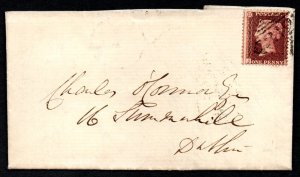 POSTAGE
ONE PENNY
Charles
16 Summerhill
Dublin